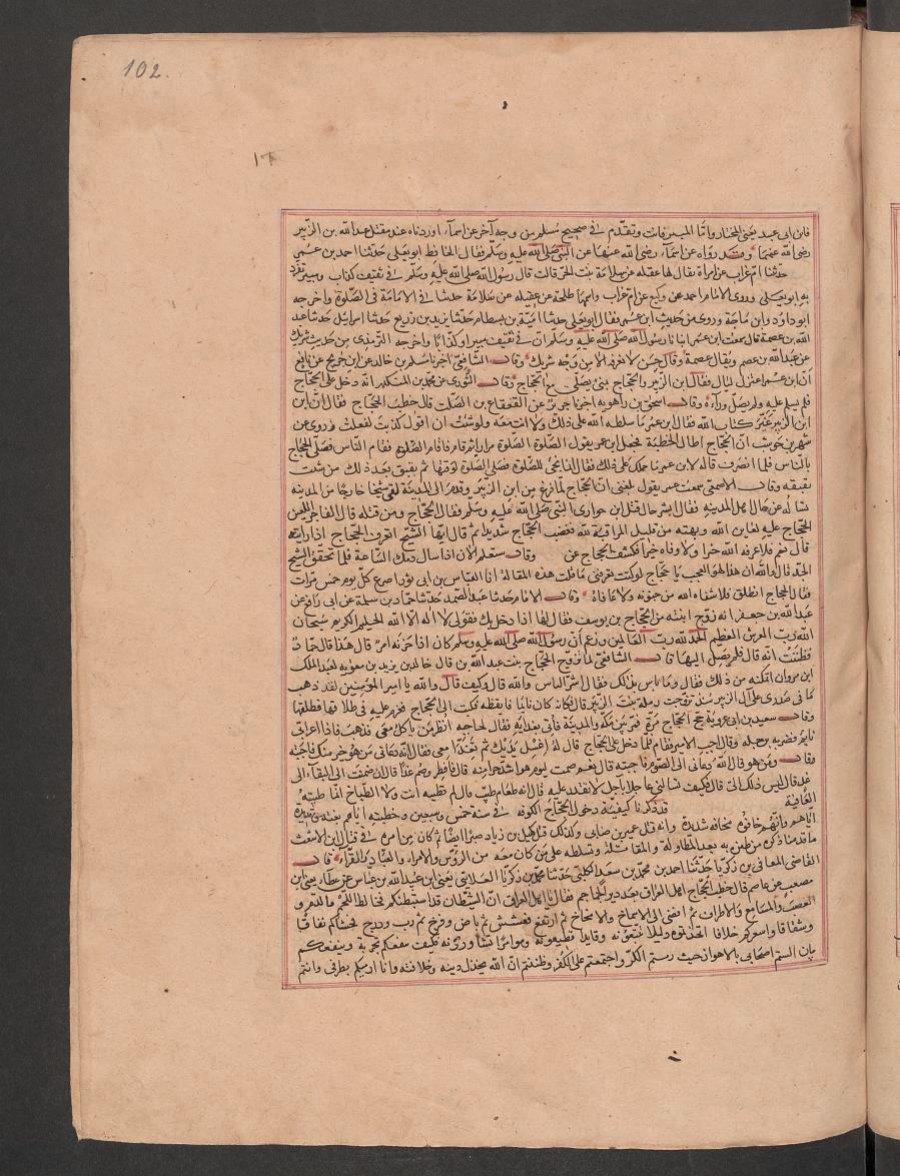 102.
١٢
فابن ابى عبيد يعنى المختار واما المبير فانت وتقدم فى صحيح مسلم من وجه آخر عن اسماء اوردناه عند مقتل عبد الله بن الزبير
رضى الله عنهما وقد رواه عن اسماء رضى الله عنها عن النبى صلى الله عليه وسلم فقال الحافظ ابو يعلى حدثنا احمد بن عمر
حدثنا ام غراب عن امراة يقال لها عقيله عن سلامة بنت الحر قالت قال رسول الله صلى الله عليه وسلم فى ثقيف كذاب ومبير تفرد
به ابو يعلى وروى الامام احمد عن وكيع عن ام غراب واسمها طلحة عن عقيله عن سلامة حديثا فى الامامة فى الصلوة واخرجه
ابو داود وابن ماجة وروى من حديث ابن عمر فقال ابو يعلى حدثنا امية بن بسطام حدثنا يزيد بن زريع حدثنا اسرائيل حدثنا عبد
الله بن عصمة قال سمعت ابن عمر انبانا رسول الله صلى الله عليه وسلم ان فى ثقيف مبيرا وكذابا واخرجه الترمذى من حديث شريك
عن عبد الله بن عصم ويقال عصمة وقال حسن لا نعرفه الا من وجه شريك وقال الشافعى اخبرنا مسلم بن خالد عن ابن جريج عن نافع
ان ابن عمر اعتزل ليال قتال ابن الزبير والحجاج بمنى يصلى مع الحجاج وقال الثورى عن محمد بن المنكدر انه دخل على الحجاج
فلم يسلم عليه ولم يصل وراءه وقال اسحق بن راهويه اخبرنا جرير عن القعقاع بن الصلت قال خطب الحجاج فقال ان ابن
ابن الزبير غير كتاب الله فقال ابن عمر ما سلطه الله على ذلك ولا انت معه ولو شئت ان اقول كذبت لفعلت وروى عن
شهر بن حوشب ان الحجاج اطال الخطبة فجعل ابن عمر يقول الصلوة الصلوة مرارا ثم قام فاقام الصلوة فقام الناس فصلى الحجاج
بالناس فلما انصرف قال له لابن عمر ما حملك على ذلك فقال انما نجئ للصلوة فصلى الصلوة لوقتها ثم بقبق بعد ذلك من شئت
بقبقه وقال الاصمعى سمعت عمى يقول بلغنى ان الحجاج لما فرغ من ابن الزبير وقدم الى المدينة لقى شيخا خارجا من المدينه
ساله عن حال اهل المدينه فقال بشر حال قتل ابن حوارى النبى صلى الله عليه وسلم فقال الحجاج ومن قتله قال الفاجر اللعين
الحجاج عليه لعاين الله وبهلته من قليل المراقبة لله فغضب الحجاج غضبا شديدا ثم قال ايها الشيخ اتعرف الحجاج اذا رايته
قال نعم فلا عرفه الله خيرا ولا وقاه ضيرا فكشف الحجاج عن وقال ستعلم الان اذا سال دمك الساعة فلما تحقق الشيخ
الجد قال والله ان هذا لهو العجب يا حجاج لو كنت تعرفنى ما قلت هذه المقالة انا العباس بن ابى ثور اصرع كل يوم خمس مرات
فقال الحجاج انطلق فلا شفاه الله من جنونه ولا عافاه وقال الامام حدثنا عبد الصمد حدثنا حماد بن سلمة عن ابى رافع عن
عبد الله بن جعفر انه زوج ابنته من الحجاج بن يوسف فقال لها اذا دخل بك فقولى لا اله الا الله الحليم الكريم سبحان
الله رب العرش العظيم الحمد لله رب العالمين وزعم ان رسول الله صلى الله عليه وسلم كان اذا حزنه امر قال هذا قال حماد
فظننت انه قال فلم يصل اليها قال الشافعى لما تزوج الحجاج بنت عبد الله بن قال خالد بن يزيد بن معويه لعبد الملك
ابن مروان اتمكنه من ذلك فقال وما باس بذلك فقال اشد الناس والله قال وكيف قال والله يا امير المؤمنين لقد ذهب
ما فى صدرى على آل الزبير منذ تزوجت رملة بنت الزبير قال فكانه كان نائما فايقظه فكتب الى الحجاج فعزم عليه فى طلاقها فطلقها
وقال سعيد بن ابى عروبة حج الحجاج مرة فمر بين مكة والمدينة فاتى بغدائه فقال لحاجبه انظر من ياكل معى فذهب فاذا اعرابى
نائم فضربه برجله وقال اجب الامير فقام فلما دخل على الحجاج قال له اغسل يديك ثم تغدا معى فقال انه دعانى من هو خير منك فاجبته
وقال ومن هو قال الله دعانى الى الصوم فاجبته قال نعم صمت ليوم هو اشد حرا منه قال فافطر وصم غدا قال ان ضمنت الى البقاء الى
غد قال ليس ذلك لى قال فكيف تسالنى عاجلا بآجل لا تقدر عليه قال انه طعام طيب قال لم تطيبه انت ولا الطباخ انما طيبته
العافية قد ذكرنا كيفية دخول الحجاج الكوفه فى سنة خمس وسبعين وخطبته
اياهم وانهم خافوه مخافة شديدة وانه قتل عمير بن ضابى وكذلك قتل كميل بن زياد صبرا ايضا ثم كان من امره فى قتال ابن الاشعث
ما قدمنا ذكره من ظفر به بعد المطاولة والمقاتلة وتسلطه على من كان معه من الرؤس والامراء والعباد والقراء قال
القاضى المعافى بن زكريا حدثنا احمد بن محمد بن سعد الكلبى حدثنا محمد بن زكريا الغلابى يعنى ابن عبيد الله بن عباس عن عطاء يعنى ابن
مصعب عن عاصم قال خطب الحجاج اهل العراق بعد دير الجماجم فقال يا اهل العراق ان الشيطان قد استبطنكم فخالط اللحم والدم و
العصب والمسامع والاطراف ثم افضى الى الاسماخ والامخاخ ثم ارتفع فعشش ثم باض وفرخ ثم دب ودرج فحشاكم نفاقا
وشقاقا واشعركم خلافا اتخذتموه دليلا تتبعونه وقايدا تطيعونه ومؤامرا تشاورونه فكيف تنفعكم تجربة وينفعكم
بيان الستم اصحابى بالاهواز حيث رمتم المكر واجتمعتم على الكفر وظننتم ان الله يخذل دينه وخلافته وانا ارميكم بطرفى وانتم